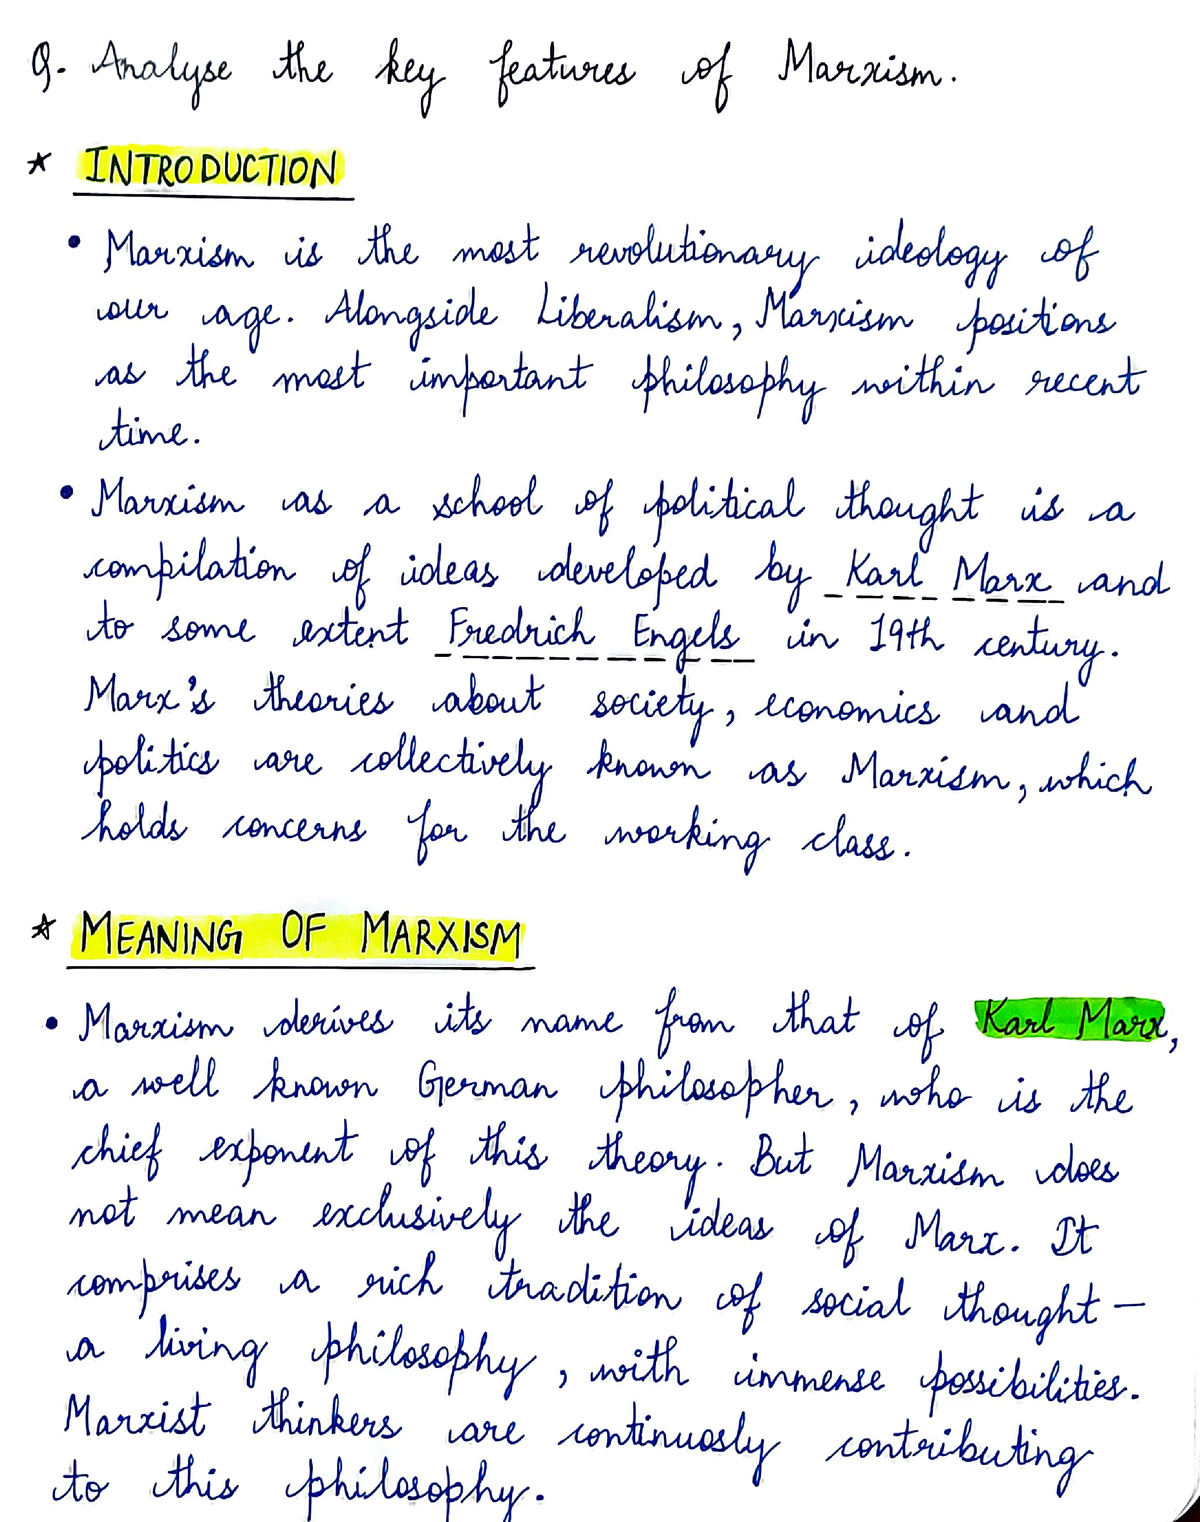 Q. Analyse the key features of Marxism.
* INTRODUCTION
• Marxism is the most revolutionary ideology of
our age. Alongside Liberalism, Marxism positions
as the most important philosophy within recent
time.
• Marxism as a school of political thought is a
compilation of ideas developed by Karl Marx and
to some extent Fredrich Engels in 19th century.
Marx's theories about society, economics and
politics are collectively known as Marxism, which
holds concerns for the working class.
* MEANING OF MARXISM
• Marxism derives its name from that of Karl Marx,
a well known German philosopher, who is the
chief exponent of this theory. But Marxism does
not mean exclusively the ideas of Marx. It
comprises a rich tradition of social thought —
a living philosophy, with immense possibilities.
Marxist thinkers are continuosly contributing
to this philosophy.